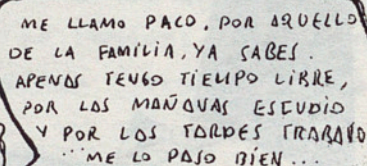 ME LLAMO PACO, POR AQUELLO
DE LA FAMILIA, YA SABES.
APENAS TENGO TIEMPO LIBRE,
POR LAS MAÑANAS ESTUDIO
Y POR LAS TARDES TRABAJO
...ME LO PASO BIEN...